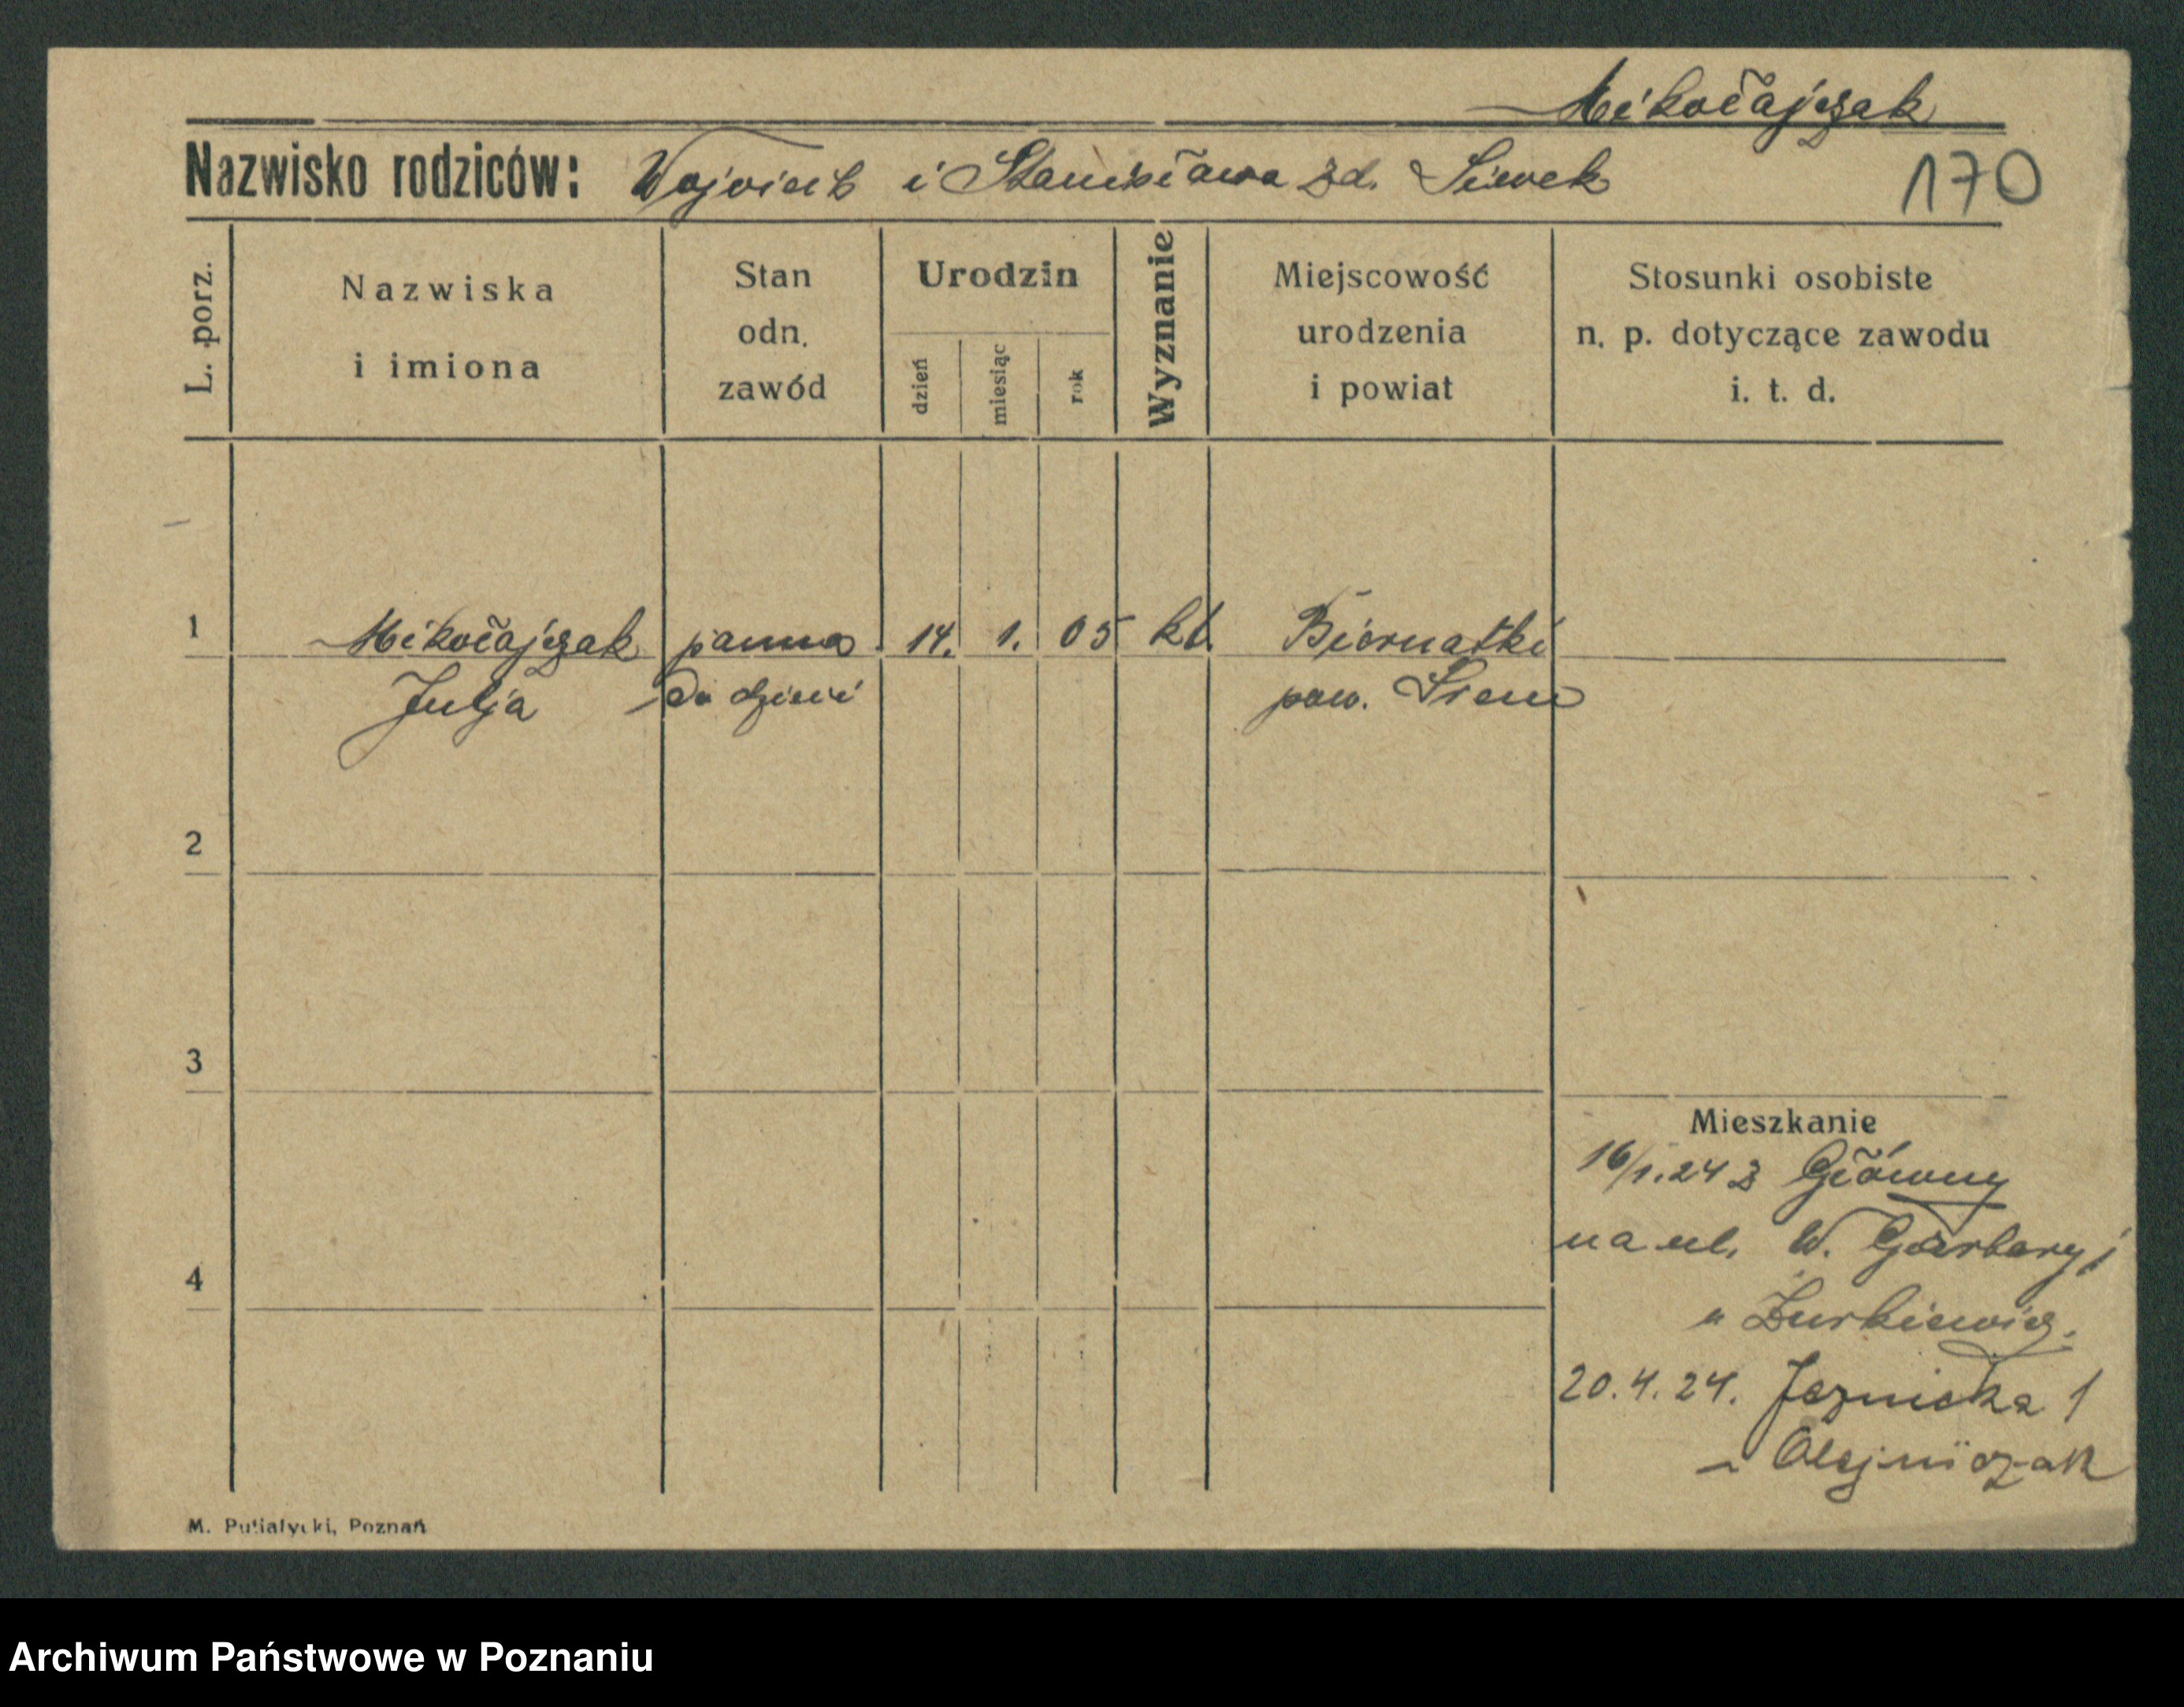 Mikołajczak
Nazwisko rodziców: Wojciech i Stanisława zd. Siwek
170
L. porz.
Nazwiska
i imiona
Stan
odn.
zawód
Urodzin
dzień
miesiąc
rok
Wyznanie
Miejscowość
urodzenia
i powiat
Stosunki osobiste
n. p. dotyczące zawodu
i. t. d.
1 Mikołajczak panna 14. 1. 05 kt. Biernatki
Julja do dzieci pow. Śrem
2
3
Mieszkanie
16/1.24 z Główny
na ul. W. Garbary 1
u Żurkiewicz.
4
20.4.24. Jeznicka 1
u Olejniczak
M. Putiatycki, Poznań
Archiwum Państwowe w Poznaniu